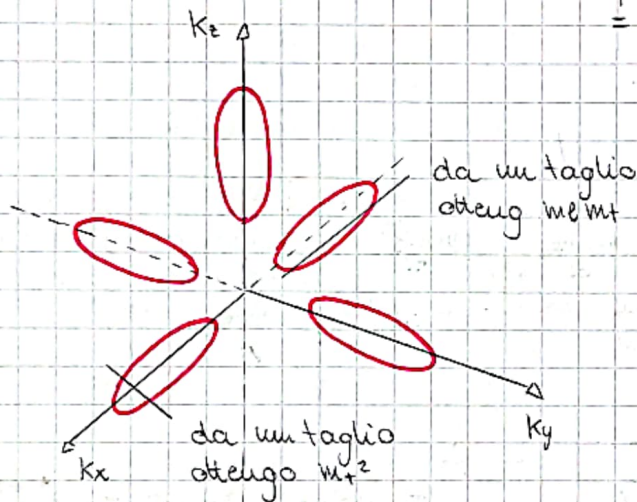 =
Kz
da un taglio
otteng me mt
Ky
da un taglio
ottengo mt²
Kx